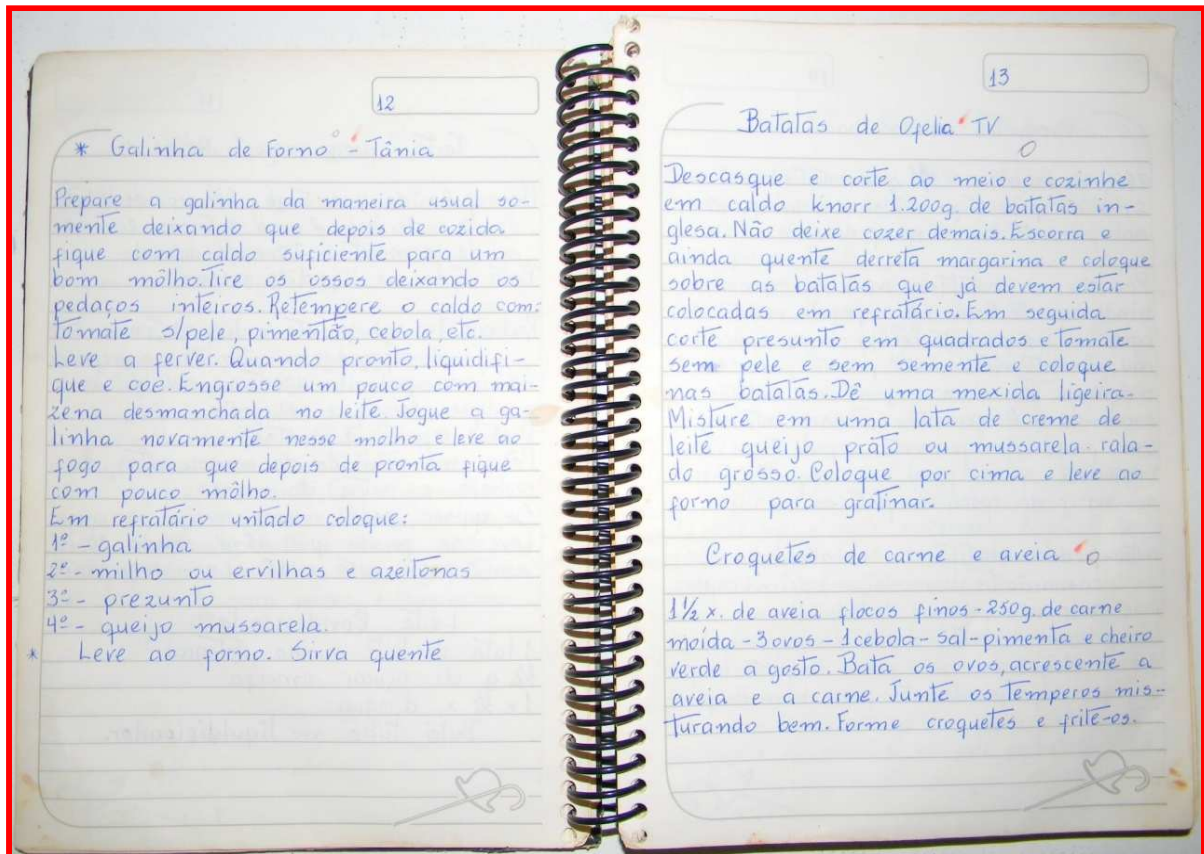 12
* Galinha de Forno - Tânia
Prepare a galinha da maneira usual so-
mente deixando que depois de cozida
fique com caldo suficiente para um
bom môlho. Tire os ossos deixando os
pedaços inteiros. Retempere o caldo com:
tomate s/pele, pimentão, cebola, etc.
Leve a ferver. Quando pronto, liquidifi-
que e coe. Engrosse um pouco com mai-
zena desmanchada no leite. Jogue a ga-
linha novamente nesse molho e leve ao
fogo para que depois de pronta fique
com pouco môlho.
Em refratário untado coloque:
1º - galinha
2º - milho ou ervilhas e azeitonas
3º - prezunto
4º - queijo mussarela.
* Leve ao forno. Sirva quente
13
Batatas de Ofelia TV
Descasque e corte ao meio e cozinhe
em caldo knorr 1.200g. de batatas in-
glesa. Não deixe cozer demais. Escorra e
ainda quente derreta margarina e coloque
sobre as batatas que já devem estar
colocadas em refratário. Em seguida
corte presunto em quadrados e tomate
sem pele e sem semente e coloque
nas batatas. Dê uma mexida ligeira.
Misture em uma lata de creme de
leite queijo prato ou mussarela rala-
do grosso. Coloque por cima e leve ao
forno para gratinar.
Croquetes de carne e aveia
1½ x. de aveia flocos finos - 250g. de carne
moída - 3 ovos - 1 cebola - sal - pimenta e cheiro
verde a gosto. Bata os ovos, acrescente a
aveia e a carne. Junte os temperos mis-
turando bem. Forme croquetes e frite-os.